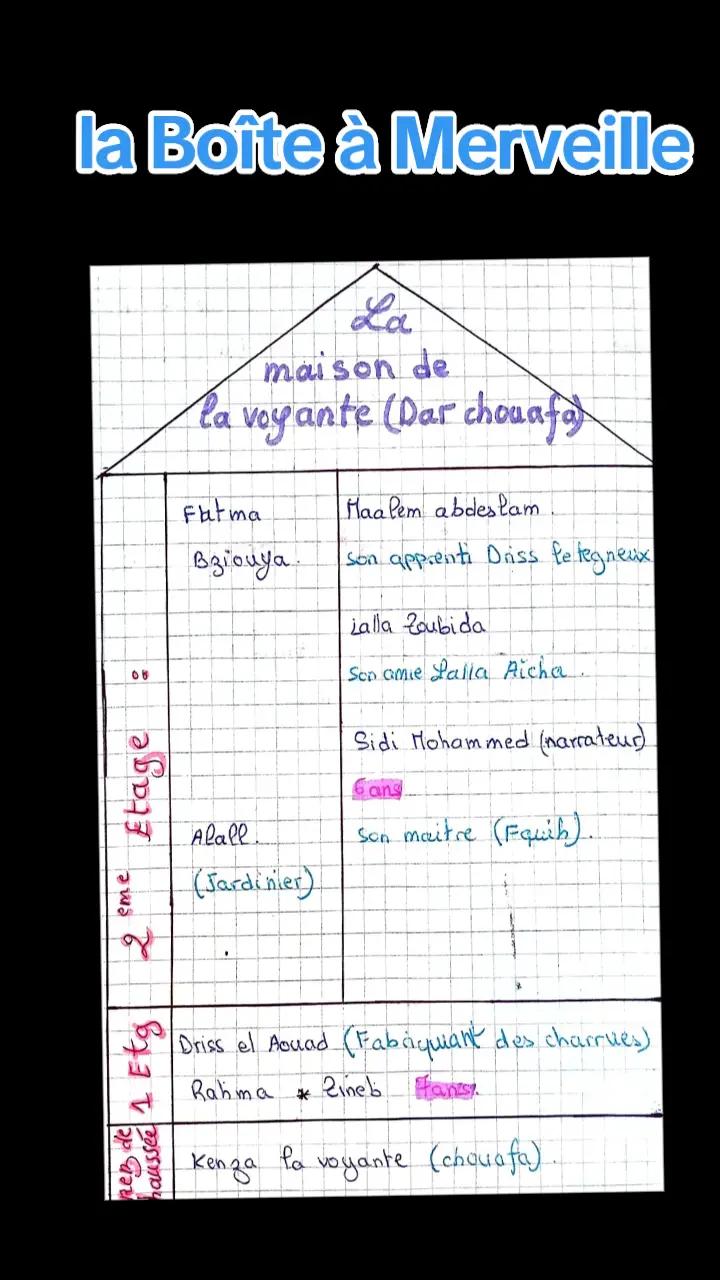 la Boîte à Merveille
La
maison de
la voyante (Dar chouafa)
2 eme Etage :
Fatma
Bziouya.
Alall.
(Jardinier)
Maalem abdeslam.
son apprenti Driss le tegneux
Lalla Zoubida
Son amie Lalla Aicha.
Sidi Mohammed (narrateur)
6 ans
son maitre (Fquih).
1 Etg
Driss el Aouad (Fabriquant des charrues)
Rahma * Zineb 7ans.
rez de
haussée
Kenza la voyante (chouafa).